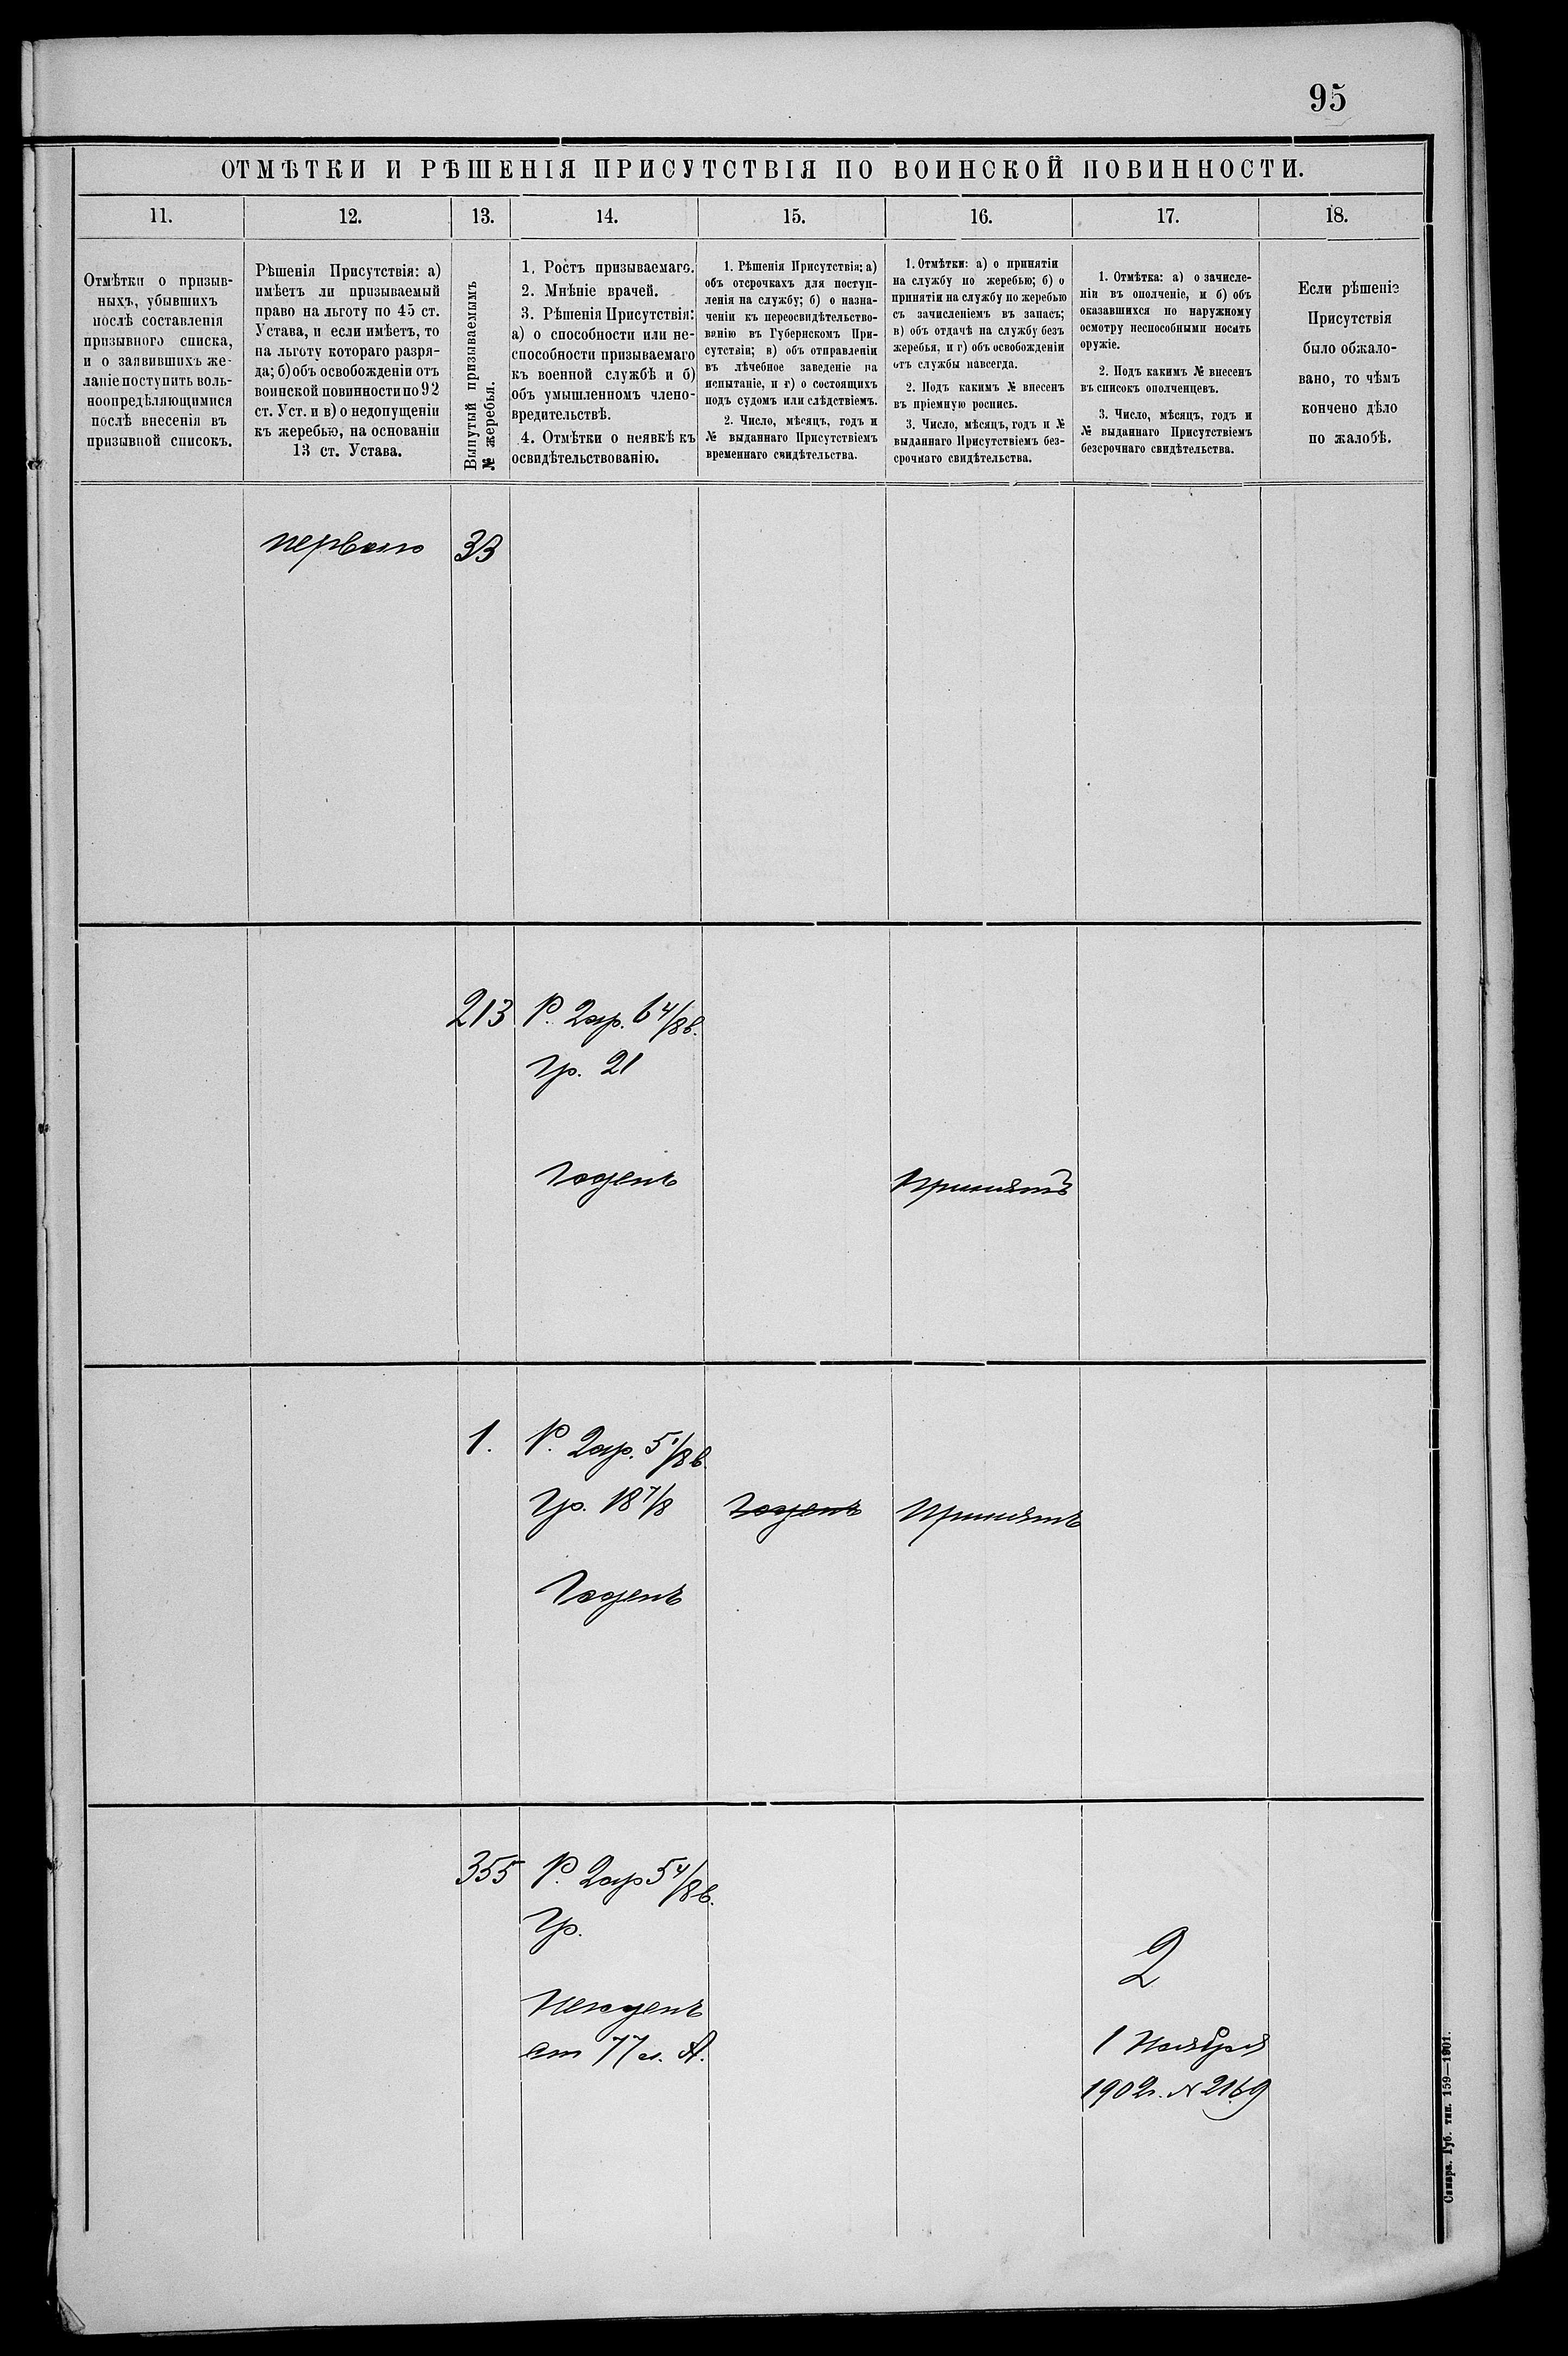 95
ОТМѢТКИ И РѢШЕНІЯ ПРИСУТСТВІЯ ПО ВОИНСКОЙ ПОВИННОСТИ.
11.
12.
13.
14.
15.
16.
17.
18.
Отмѣтки о призыв-
ныхъ, убывшихъ
послѣ составленія
призывного списка,
и о заявившихъ же-
ланіе поступить воль-
ноопредѣляющимися
послѣ внесенія въ
призывной списокъ.
Рѣшенія Присутствія: а)
имѣетъ ли призываемый
право на льготу по 45 ст.
Устава, и если имѣетъ, то
на льготу котораго разря-
да; б) объ освобожденіи отъ
воинской повинности по 92
ст. Уст. и в) о недопущеніи
къ жеребью, на основаніи
13 ст. Устава.
Вынутый призываемымъ
№ жеребья.
1. Ростъ призываемаго.
2. Мнѣніе врачей.
3. Рѣшенія Присутствія:
а) о способности или не-
способности призываемаго
къ военной службѣ и б)
объ умышленномъ члено-
вредительствѣ.
4. Отмѣтки о неявкѣ къ
освидѣтельствованію.
1. Рѣшенія Присутствія: а)
объ отсрочкахъ для поступ-
ленія на службу; б) о назна-
ченіи къ переосвидѣтельство-
ванію въ Губернскомъ При-
сутствіи; в) объ отправленіи
въ лѣчебное заведеніе на
испытаніе, и г) о состоящихъ
подъ судомъ или слѣдствіемъ.
2. Число, мѣсяцъ, годъ и
№ выданнаго Присутствіемъ
временнаго свидѣтельства.
1. Отмѣтки: а) о принятіи
на службу по жеребью; б) о
принятіи на службу по жеребью
съ зачисленіемъ въ запасъ;
в) объ отдачѣ на службу безъ
жеребья, и г) объ освобожденіи
отъ службы навсегда.
2. Подъ какимъ № внесенъ
въ пріемную роспись.
3. Число, мѣсяцъ, годъ и №
выданнаго Присутствіемъ без-
срочнаго свидѣтельства.
1. Отмѣтка: а) о зачисле-
ніи въ ополченіе, и б) объ
оказавшихся по наружному
осмотру неспособными носить
оружіе.
2. Подъ какимъ № внесенъ
въ списокъ ополченцевъ.
3. Число, мѣсяцъ, годъ и
№ выданнаго Присутствіемъ
безсрочнаго свидѣтельства.
Если рѣшеніе
Присутствія
было обжало-
вано, то чѣмъ
кончено дѣло
по жалобѣ.
перваго
33
213
Р. 2ар. 6 4/8 в.
Гр. 21
Годенъ
Принятъ
1.
Р. 2ар. 5 1/8 в.
Гр. 18 7/8
Годенъ
Принятъ
Годенъ
355
Р. 2ар 5 4/8 в.
Гр.
Негоденъ
ст 77 л. А.
2
1 Ноября
1902г. № 2169
Самара. Губ. тип. 159—1901.